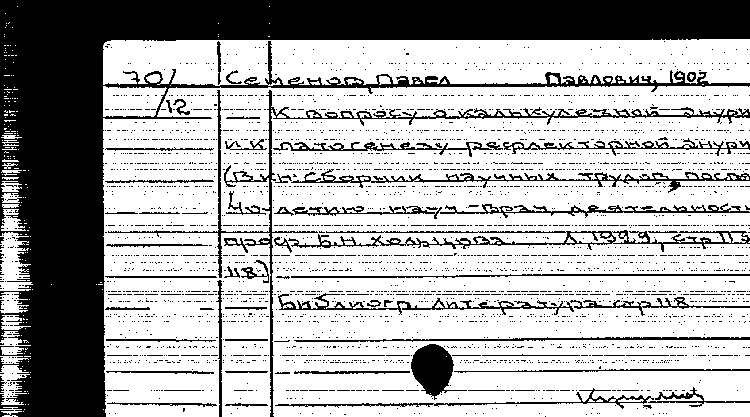 70/12 Семенов, Павел Павлович, 1902
К вопросу о калькулезной анури
и к патогенезу рефлекторной анури
(В кн: Сборник научных трудов, посвя
40-летию науч-врач. деятельность
проф Б.Н. Хольцова. Л., 1929, стр 115
118)
Библиогр. Литература стр 118